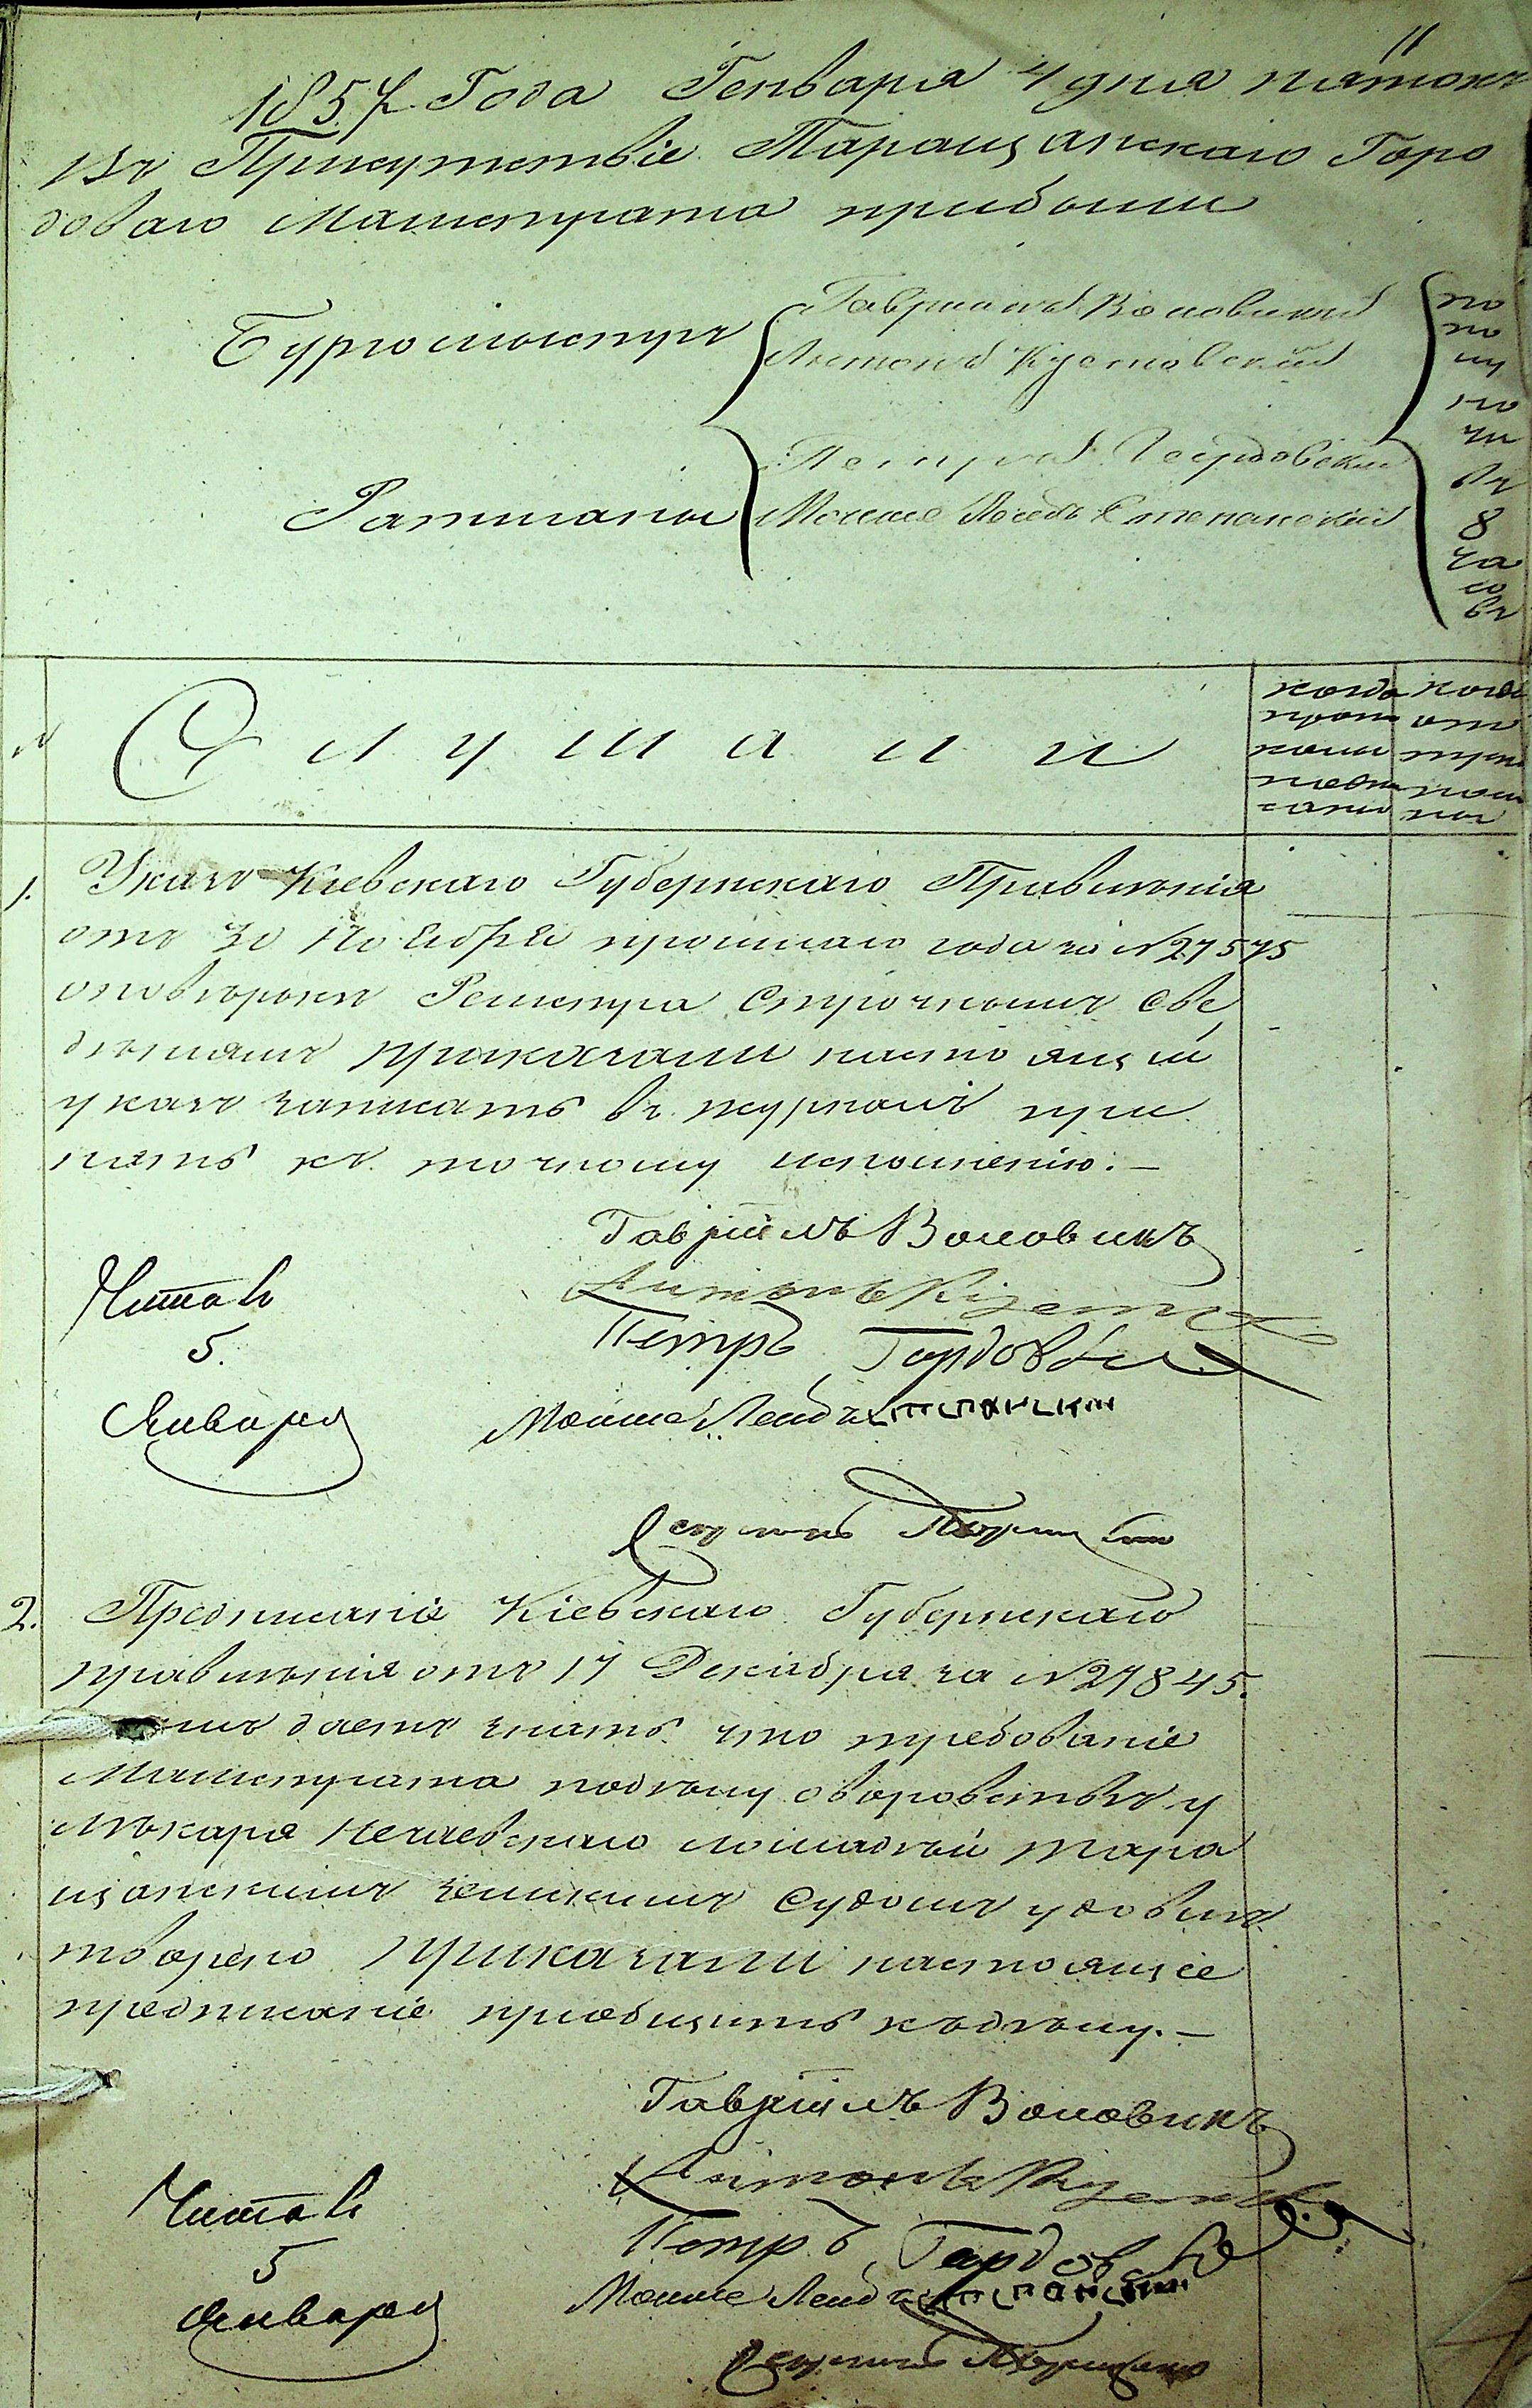 11
1857 Года Генваря 4 дня пятокъ
Въ Присутствіе Таращанскаго Горо
доваго Магистрата прибыли
Бургомистръ
Гавріилъ Воловикъ
Антонъ
Ратманы
Петръ Гордовскій
Мошко Лейбъ Степанскій
по
по
лу
но
чи
въ
8
ча
со
въ
№
Слушали
когда
прото
колы
подпи
саны
когда
от
пра
1. Указъ Кіевскаго Губернскаго Правленія
отъ 30 Ноября прошлаго года за №27575
о повѣркѣ Регистра Строчнымъ Све
деніямъ приказали настоящій
указъ записать въ журналъ при
нять къ точному исполненію. —
Гавріилъ Воловикъ
Антонъ
Петръ Гордовскій
Мошко Лейбъ Степанскій
Читалъ
5.
Января
Секретарь
2. Предписаніе Кіевскаго Губернскаго
правленія отъ 17 Декабря за №27845.
даетъ знать что требованіе
Магистрата по дѣлу о воровствѣ у
лѣкаря Нечаевскаго лошадей Тара
щанскимъ земскимъ Судомъ удовле
творено приказали настоящее
предписаніе пріобщить къ дѣлу. —
Гавріилъ Воловикъ
Антонъ
Петръ Гордовскій
Мошко Лейбъ Степанскій
Читалъ
5
Января
Секретарь